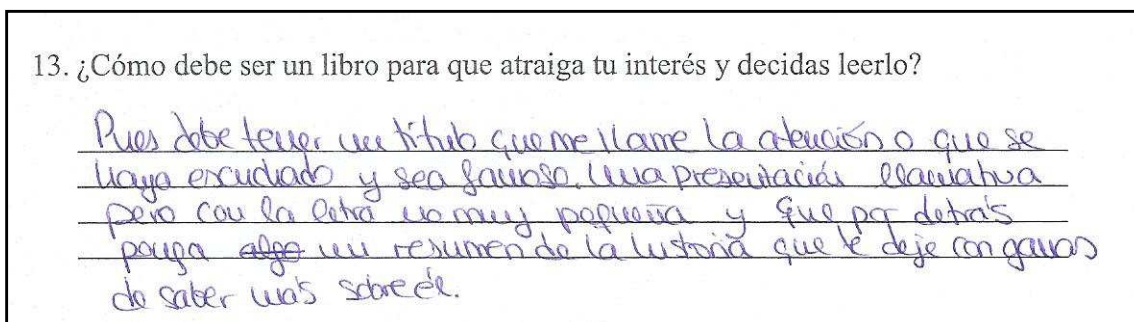 13. ¿Cómo debe ser un libro para que atraiga tu interés y decidas leerlo?
Pues debe tener un título que me llame la atención o que se
haya escuchado y sea famoso. Una presentación llamativa
pero con la letra no muy pequeña y que por detrás
ponga algo un resumen de la historia que te deje con ganas
de saber más sobre él.